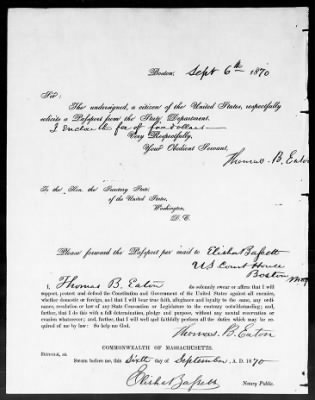 Boston, Sept 6th 1870
Sir:
The undersigned, a citizen of the United States, respectfully
solicits a Passport from the State Department.
I enclose the fee of five dollars
Very Respectfully,
Your Obedient Servant,
Thomas B. Eaton
To the Hon. the Secretary State
of the United States,
Washington,
D. C.
Please forward the Passport per mail to Elisha Bassett
US Court House
Boston Mass
I, Thomas B. Eaton do solemnly swear or affirm that I will
support, protect and defend the Constitution and Government of the United States against all enemies,
whether domestic or foreign, and that I will bear true faith, allegiance and loyalty to the same, any ordi-
nance, resolution or law of any State Convention or Legislature to the contrary notwithstanding; and,
further, that I do this with a full determination, pledge and purpose, without any mental reservation or
evasion whatsoever; and, further, that I will well and faithfully perform all the duties which may be re-
quired of me by law: So help me God.
Thomas B. Eaton
COMMONWEALTH OF MASSACHUSETTS.
Suffolk, ss.
Sworn before me, this Sixth day of September A. D. 1870
Elisha Bassett
Notary Public.